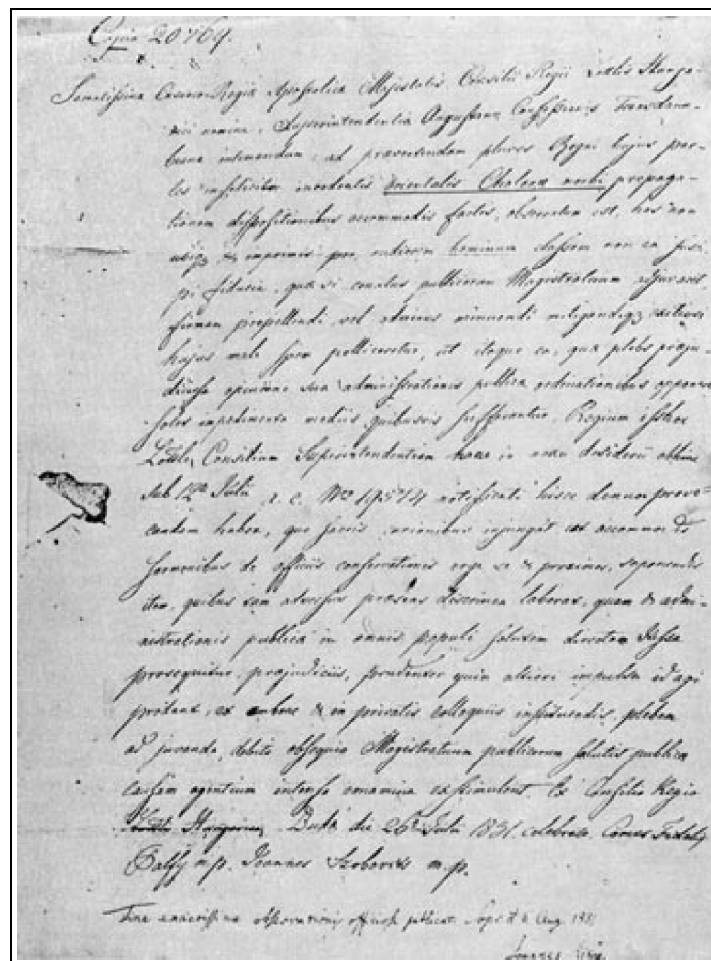 Copia 20769.
Sacratissimæ Cæsareo Regiæ Apostolicæ Majestatis Consilii Regii Lottlis Hunga-
rici nomine, Superintendentiæ Augustanæ Confessionis Transdanu-
bianæ intimandum: ad præveniendam plures Regni hujus par-
tes orientalis Choleræ morbi propaga-
tionem dispositionibus accommodis factis, observatum est, has non
ubiq & imprimis per rudiorem hominum classem non ea susci-
pi fiducia, quæ si conatus publicorum Magistratuum adjuvaret,
firmam propellendi, vel minuendi mitigandiq
hujus mali spem polliceretur, ut itaque ea, quæ plebs præju-
diciosa opinione sua administrationis publicæ ordinationibus opponere
solet impedimenta mediis quibusvis Regium isthoc
Lottle Consilium Superintendentiam hanc in nexu desiderii
sub 12a Julii a. c. No notificati hisce denuo provo-
candam habere, quo sacris injungat accommodis
sermonibus de officiis conservationis erga se & proximos, seponendis
item, quibus tam adversus præsens discrimen laborat, quam & admi-
nistrationis publicæ in omnis populi salutem
prosequitur, præjudiciis, prudenter quin altiori impulsu id agi
prodant, ex & in privatis colloquiis instituendis, plebem
ad juvanda, debito obsequio Magistratuum publicorum salutis publicæ
causam agentium intenso conamina exstimulent. Ex Consilio Regio
Lottli Hungarico Budæ die 26a Julii 1831. celebrato. Comes Fidelis
Palffy m.p. Joannes m.p.
observationis officiose publicat. Aug. 1831
Joannes